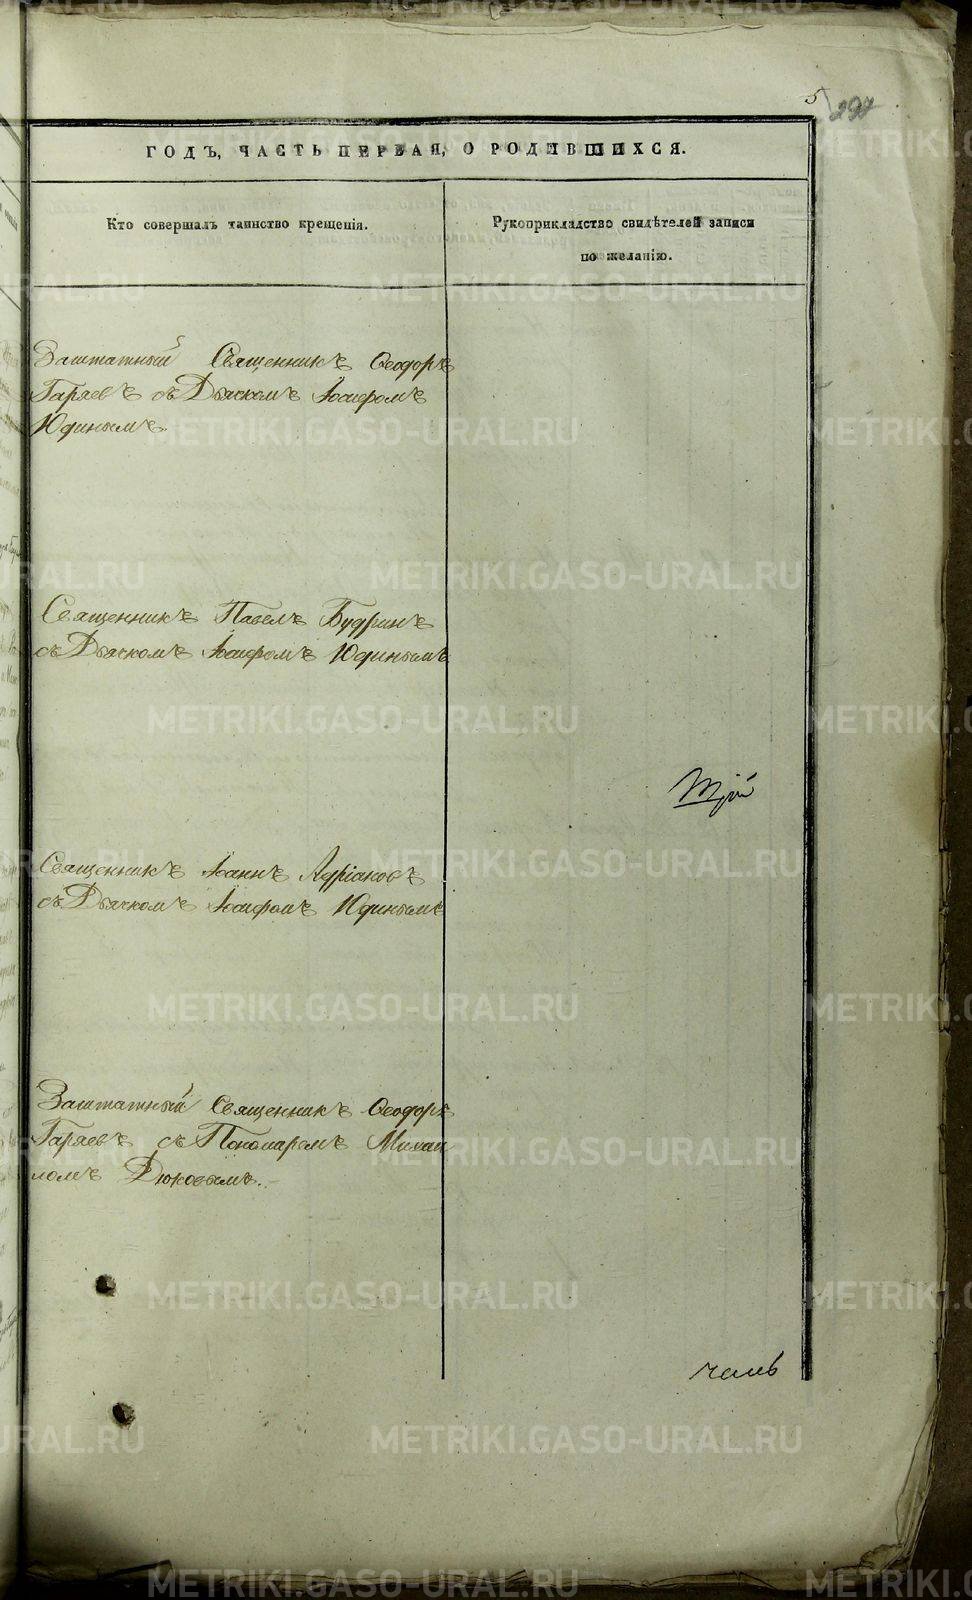 5
297
ГОДЪ, ЧАСТЬ ПЕРВАЯ, О РОДИВШИХСЯ.
Кто совершалъ таинство крещенія.
Рукоприкладство свидѣтелей записи
по желанію.
Заштатный Священникъ Ѳеодоръ
Гаряевъ съ Дьячкомъ Іосифомъ
Юдинымъ.
Священникъ Павелъ Будринъ
съ Дьячкомъ Іосифомъ Юдинымъ
Священникъ Іоаннъ Адріановъ
съ Дьячкомъ Іосифомъ Юдинымъ
Заштатный Священникъ Ѳеодоръ
Гаряевъ съ Пономаремъ Михаи
ломъ Дюковымъ.
METRIKI.GASO-URAL.RU